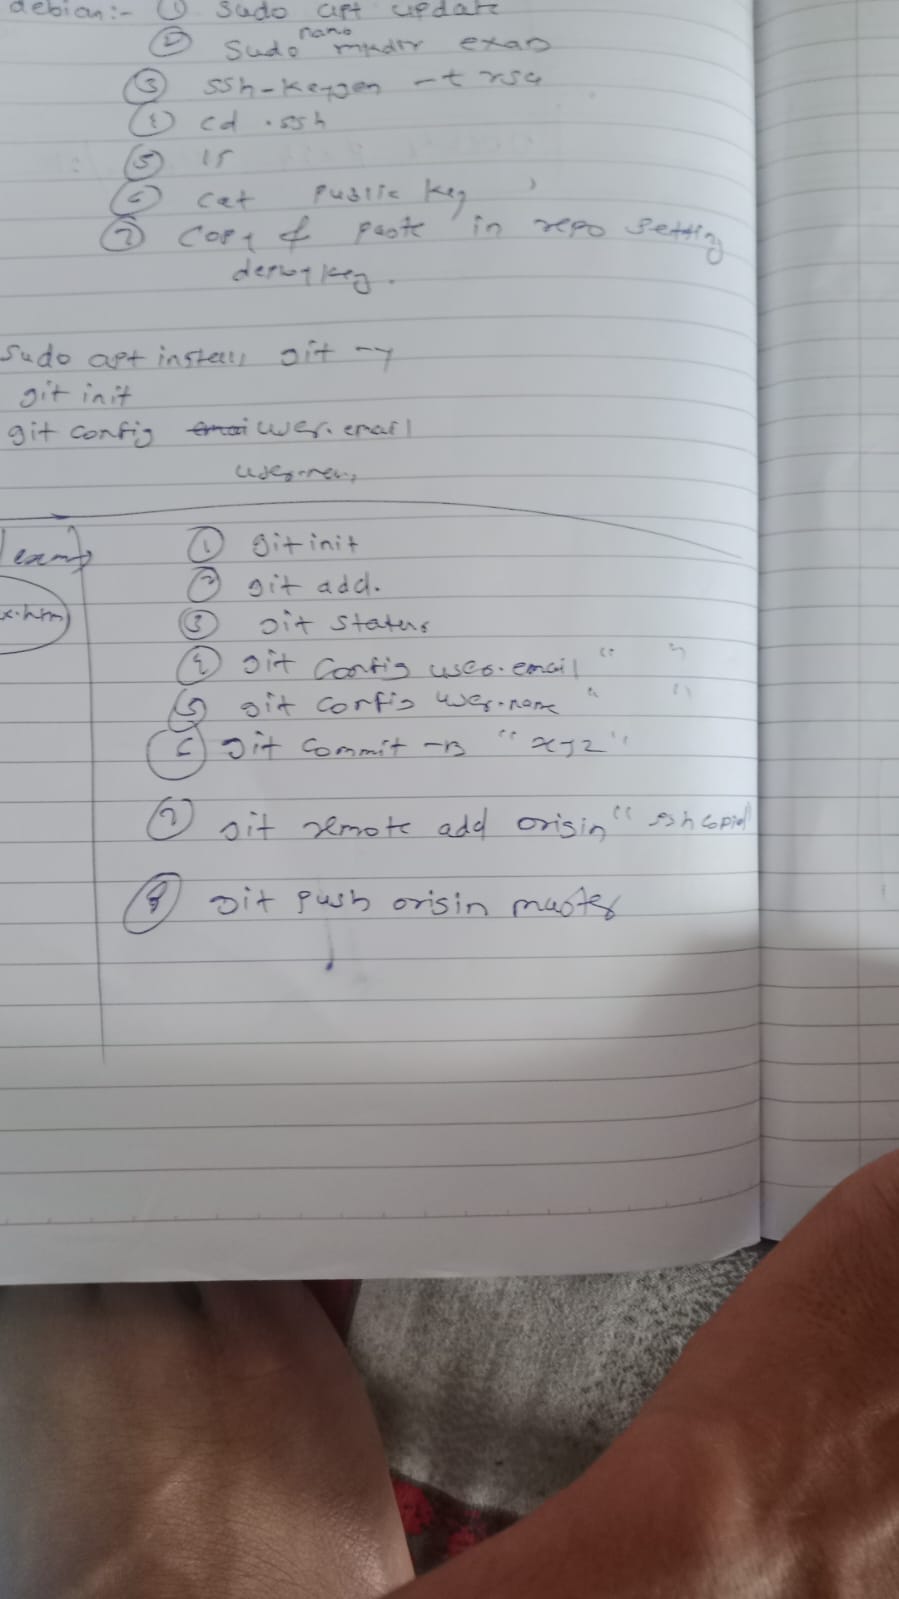 debian:- ① sudo apt update
nano
② sudo mkdir exam
③ ssh-keygen -t rsa
④ cd .ssh
⑤ ls
⑥ cat public key
⑦ copy & paste in repo setting
deploy key.
sudo apt install git -y
git init
git config user.email
① git init
② git add.
③ git status
④ git config user.email " "
⑤ git config user.name " "
⑥ git commit -m "xyz"
⑦ git remote add origin "ssh copied"
⑧ git push origin master